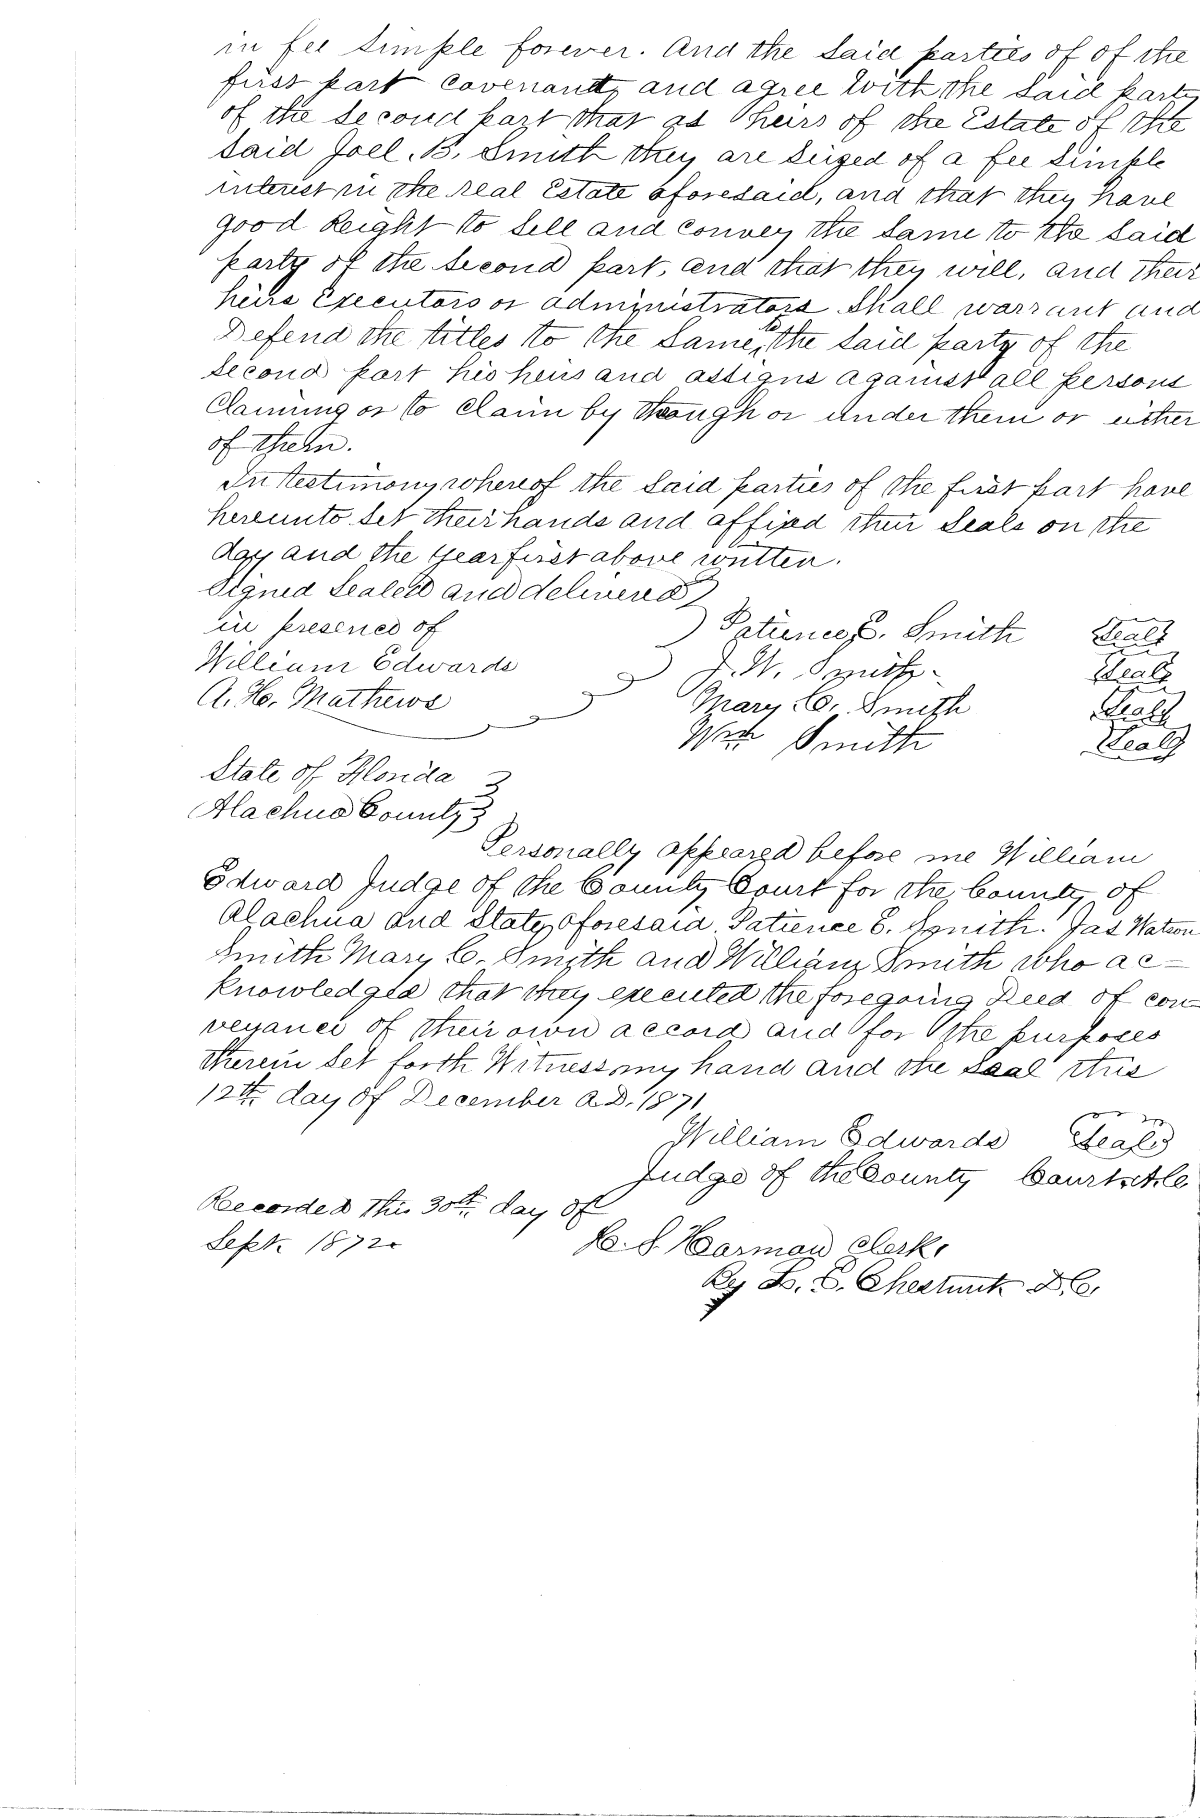 in fee simple forever. And the said parties of of the
first part covenant, and agree with the said party
of the second part that as heirs of the Estate of the
said Joel. B. Smith they are seized of a fee simple
interest in the real Estate aforesaid, and that they have
good Reight to sell and convey the same to the said
party of the second part, and that they will, and their
heirs Executors or administrators shall warrant and
Defend the titles to the same, to the said party of the
second part his heirs and assigns against all persons
Claiming or to claim by through or under them or either
of them.
In testimony whereof the said parties of the first part have
hereunto set their hands and affixed their seals on the
day and the year first above written.
Signed Sealed and delivered
in presence of
Patience E. Smith Seal
William Edwards
J. W. Smith Seal
A. H. Mathews
Mary C. Smith Seal
Wm Smith Seal
State of Florida
Alachua County
Personally appeared before me William
Edward Judge of the County Court for the County of
Alachua and State aforesaid, Patience E. Smith. Jas Watson
Smith Mary C. Smith and William Smith who ac=
knowledged that they executed the foregoing Deed of con=
veyance of their own accord and for the purposes
therein set forth Witness my hand and the Seal this
12th day of December A.D. 1871
William Edwards Seal
Judge of the County Court
Recorded this 30th day of
Sept. 1872.
Harman Clerk.
By L. E. Chestnut D.C.